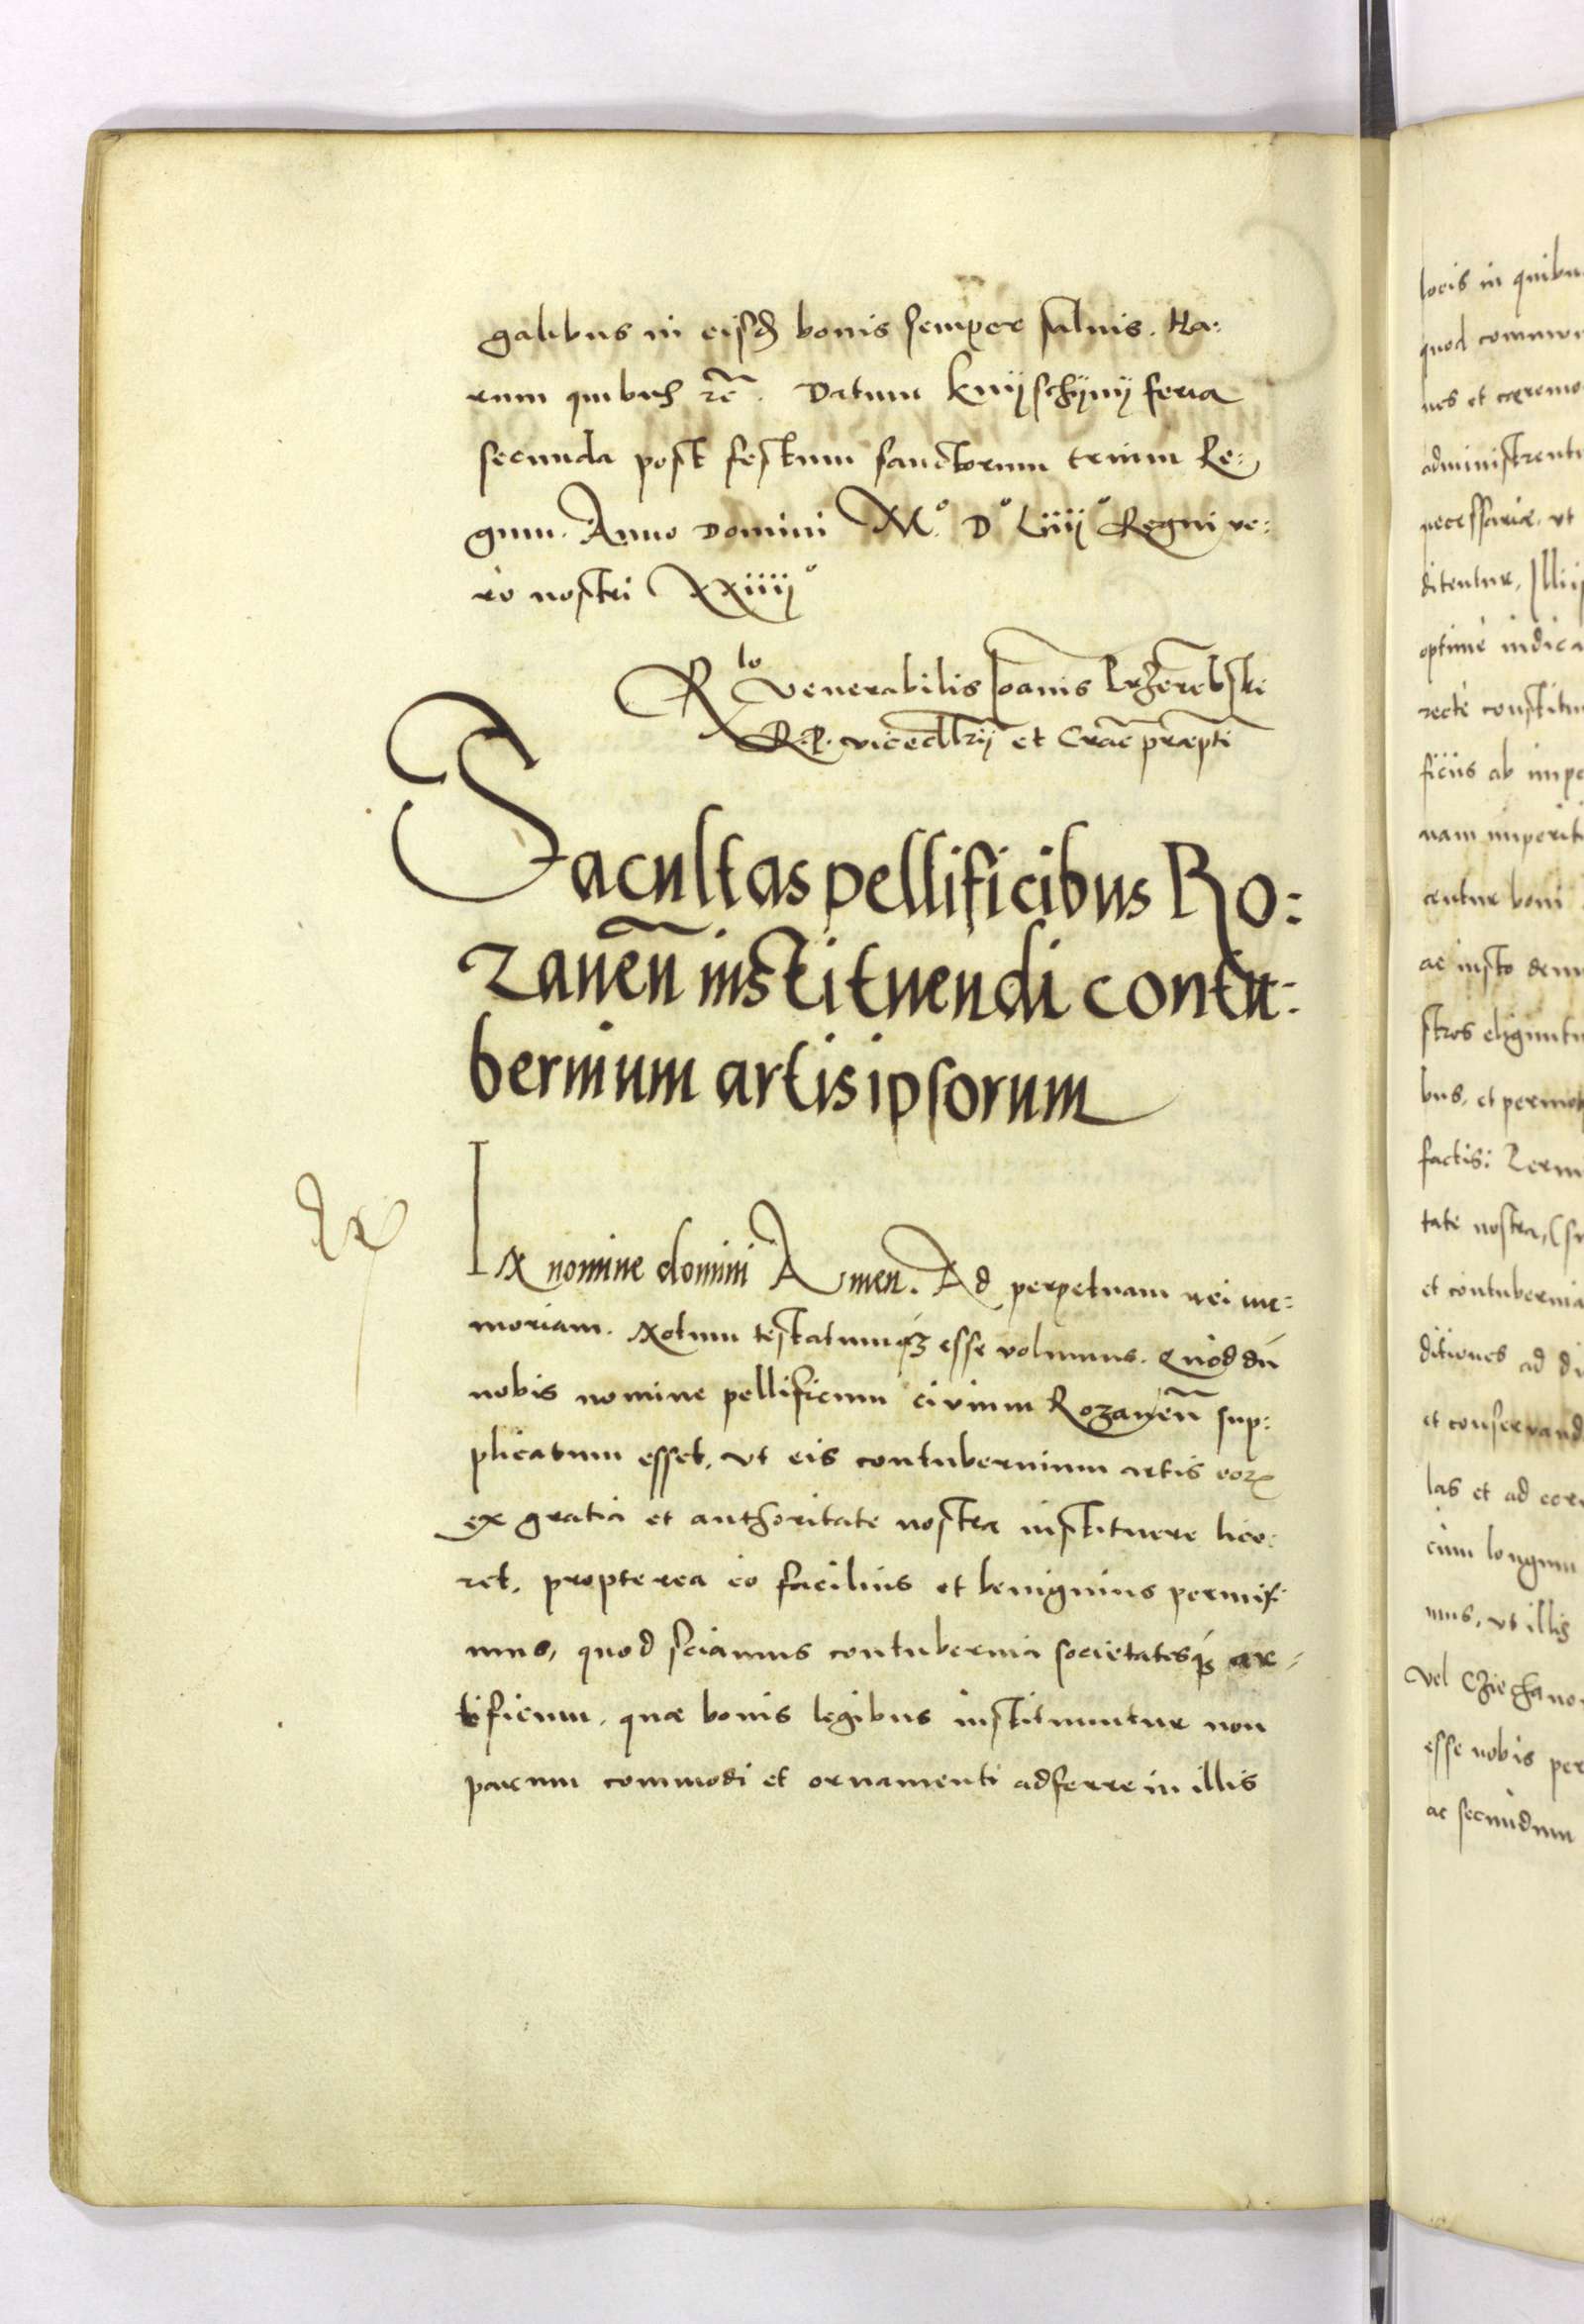 galibus in eisd bonis semper saluis. Ha:
rum quibus rẽ. Datum Knijschÿnÿ feria
secunda post festum sanctorum trium Re:
gum. Anno Domini M° D° Liiij° Regni ve:
ro nostri XXiiij°
Rlo Venerabilis Ioanis Przerẽbski
R. P. vicecllrij et Crac̃ præpti
Facultas pellificibus Ro:
zaneñ instituendi contu:
bernium artis ipsorum
Ex
IN nomine domini Amen. Ad perpetuam rei me:
moriam. Notum testatumqȝ esse volumus. Quod dũ
nobis nomine pellificum civium Rozaneñ sup:
plicatum esset, vt eis contubernium artis eorꝝ
ex gratia et authoritate nostra instituere lice:
ret, propterea eo facilius et benignius permisi
mus, quod sciamus contubernia societatesqȝ ar:
tificum, quæ bonis legibus instituuntur non
parum commodi et ornamenti adferre in illis
locis in quibu
quod commu
nes et cæremo
administrentu
necessariæ, vt
ditentur, Illi
optime indica
recte constitu
ficiis ab impe
nam imperit
centur boni
ac iusto dem
stros eliguntu
bus, et permo
factis:
tate nostra, (
et contubernia
ditiones ad di
et conservand
las et ad
cum longum
mus, vt illis
vel Cziechano
esse nobis per
ac secundum